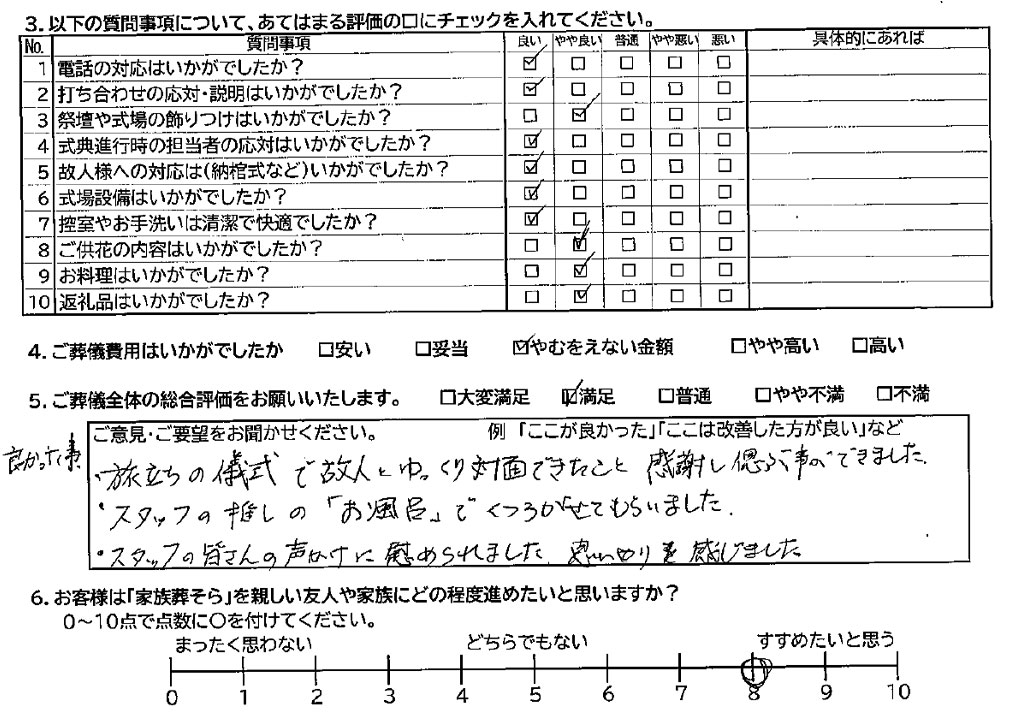 3. 以下の質問事項について、あてはまる評価の□にチェックを入れてください。
No. 質問事項 良い やや良い 普通 やや悪い 悪い 具体的にあれば
1 電話の対応はいかがでしたか? ☑ □ □ □ □
2 打ち合わせの応対・説明はいかがでしたか? ☑ □ □ □ □
3 祭壇や式場の飾りつけはいかがでしたか? □ ☑ □ □ □
4 式典進行時の担当者の応対はいかがでしたか? ☑ □ □ □ □
5 故人様への対応は(納棺式など)いかがでしたか? ☑ □ □ □ □
6 式場設備はいかがでしたか? ☑ □ □ □ □
7 控室やお手洗いは清潔で快適でしたか? ☑ □ □ □ □
8 ご供花の内容はいかがでしたか? □ ☑ □ □ □
9 お料理はいかがでしたか? □ ☑ □ □ □
10 返礼品はいかがでしたか? □ ☑ □ □ □
4. ご葬儀費用はいかがでしたか □安い □妥当 ☑やむをえない金額 □やや高い □高い
5. ご葬儀全体の総合評価をお願いいたします。 □大変満足 ☑満足 □普通 □やや不満 □不満
ご意見・ご要望をお聞かせください。 例 「ここが良かった」「ここは改善した方が良い」など
良かった事
・旅立ちの儀式で故人とゆっくり対面できたこと 感謝し偲ぶ事ができました.
・スタッフの推しの「お風呂」でくつろがせてもらいました.
・スタッフの皆さんの声かけに慰められました. 思いやりを感じました
6. お客様は「家族葬そら」を親しい友人や家族にどの程度進めたいと思いますか?
0〜10点で点数に〇を付けてください。
まったく思わない どちらでもない すすめたいと思う
0 1 2 3 4 5 6 7 8 9 10